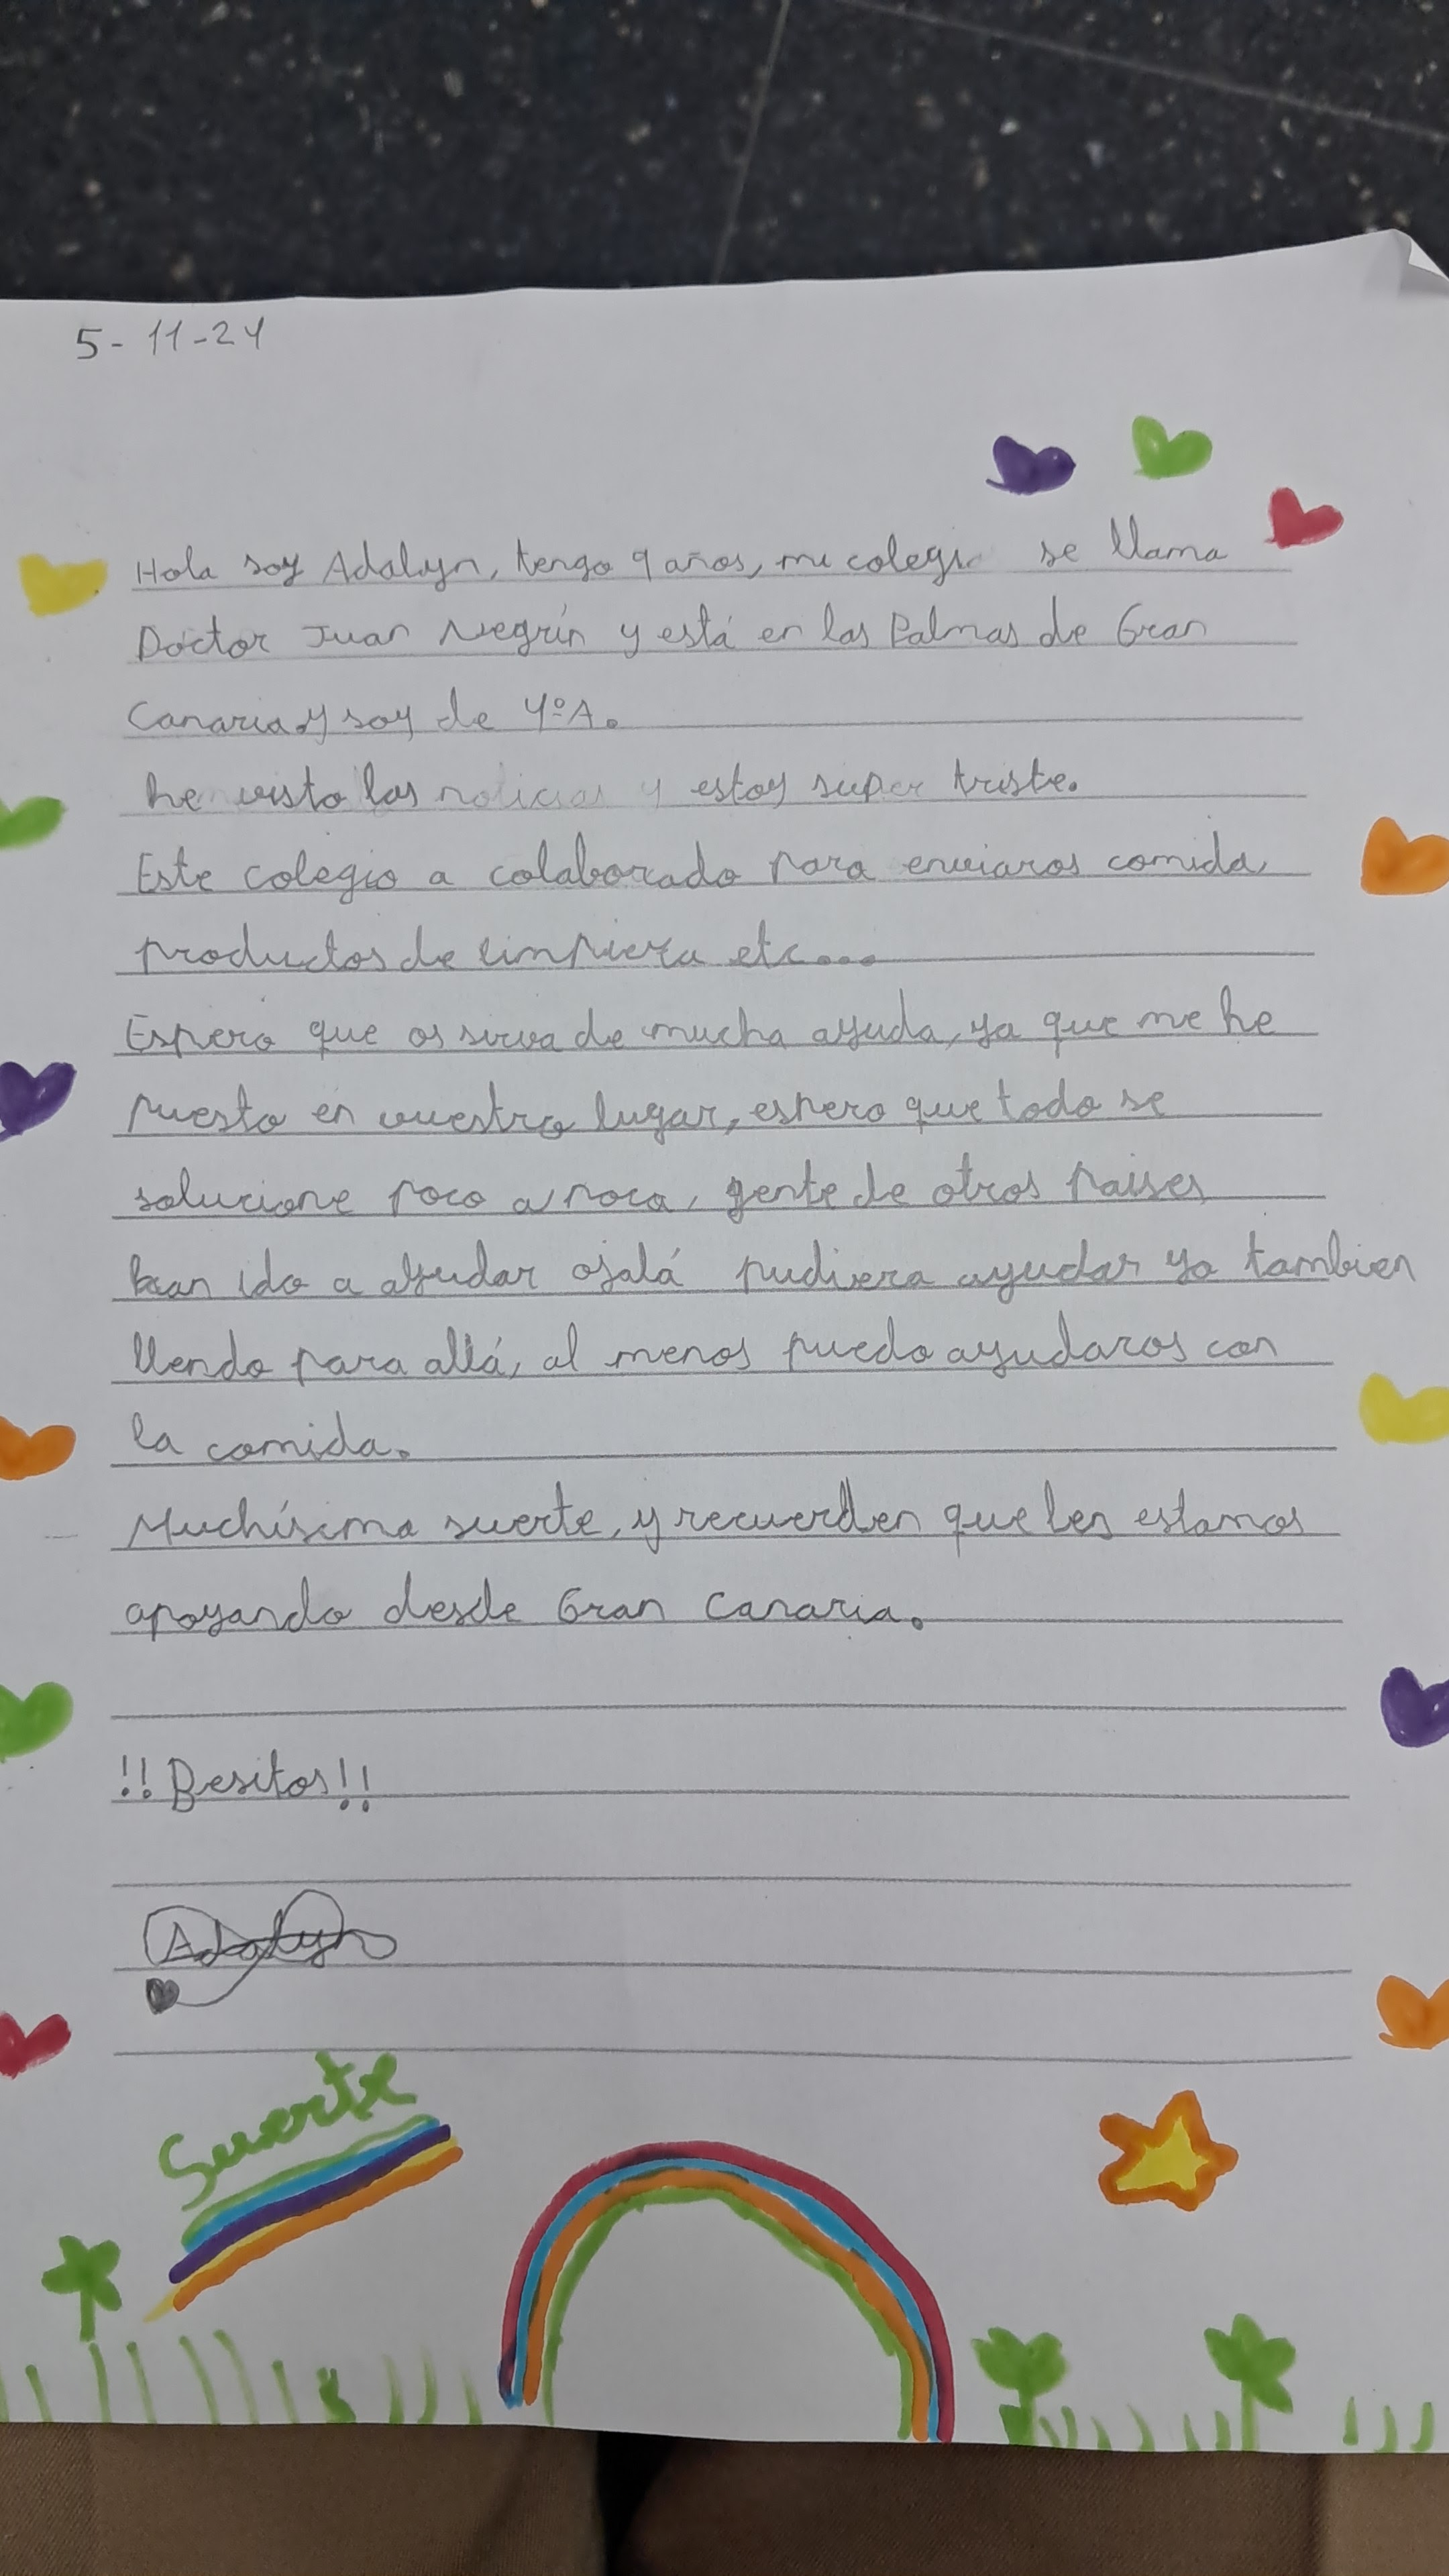 5-11-24
Hola soy Adalyn, tengo 9 años, mi colegio se llama
Doctor Juan Negrín y está en las Palmas de Gran
Canaria y soy de 4ºA.
he visto las noticias y estoy super triste.
Este colegio a colaborado para enviaros comida,
productos de limpieza etc...
Espero que os sirva de mucha ayuda, ya que me he
puesto en vuestro lugar, espero que todo se
solucione poco a poco, gente de otros paises
han ido a ayudar ojalá pudiera ayudar yo tambien
llendo para allá, al menos puedo ayudaros con
la comida.
Muchísima suerte, y recuerden que les estamos
apoyando desde Gran Canaria.
!!Besitos!!
Adalyn
Suerte